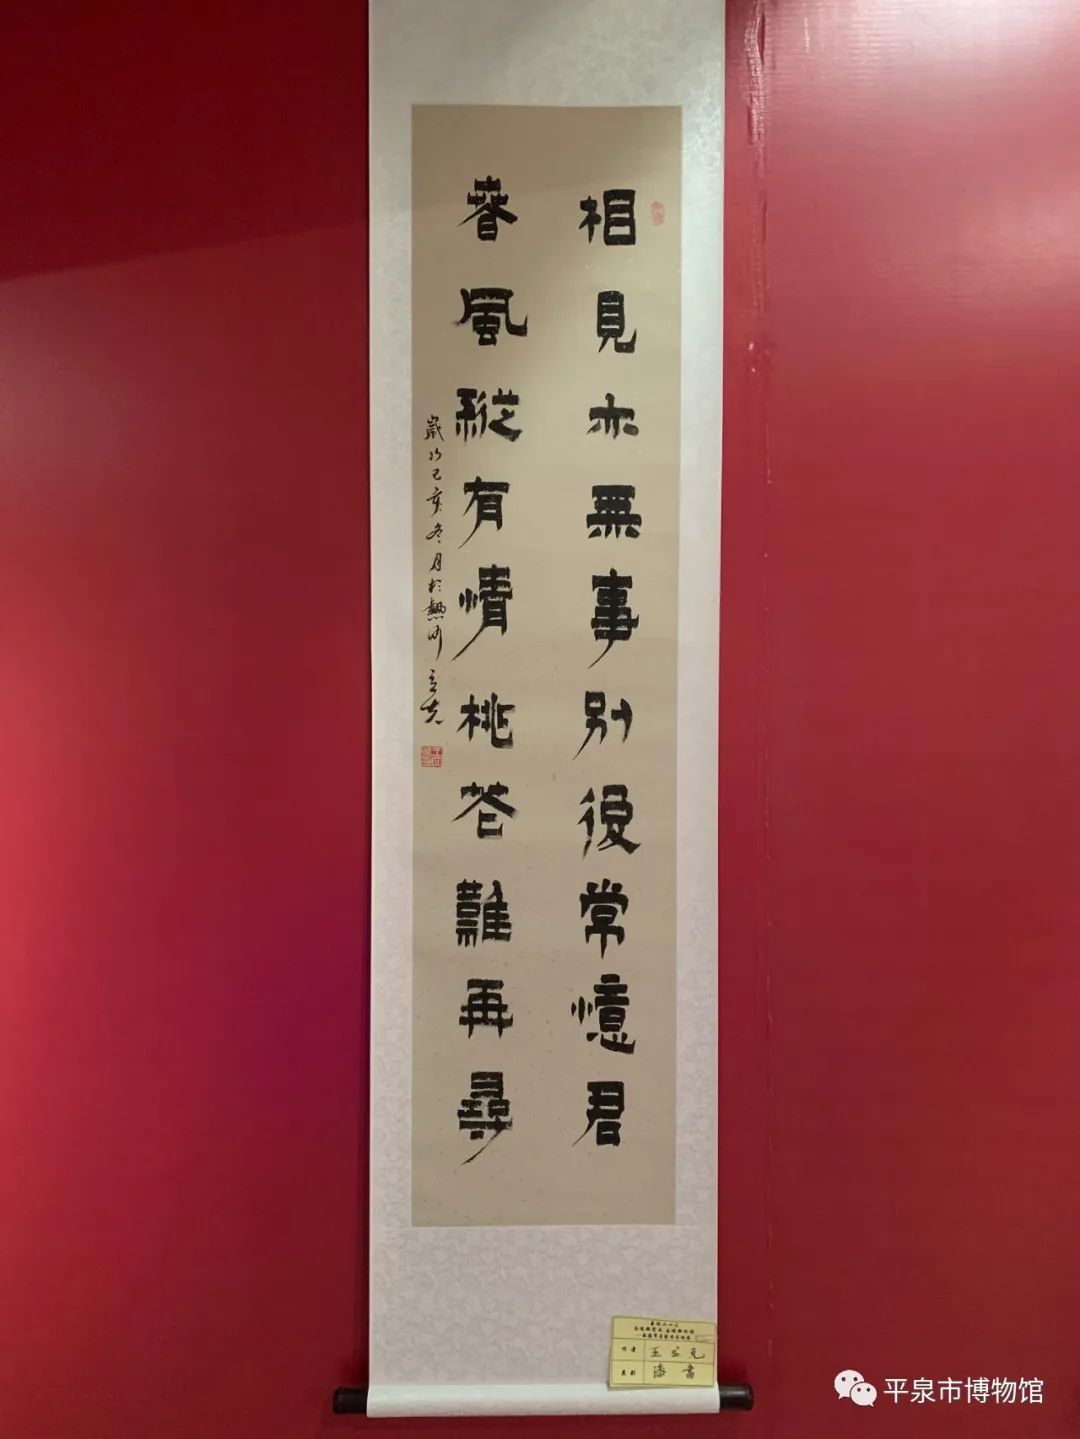 相見亦無事別後常憶君
春風縱有情桃花難再尋
歲次己亥冬月於熱河 立克
作者 王立克
類別 漆書
平泉市博物馆